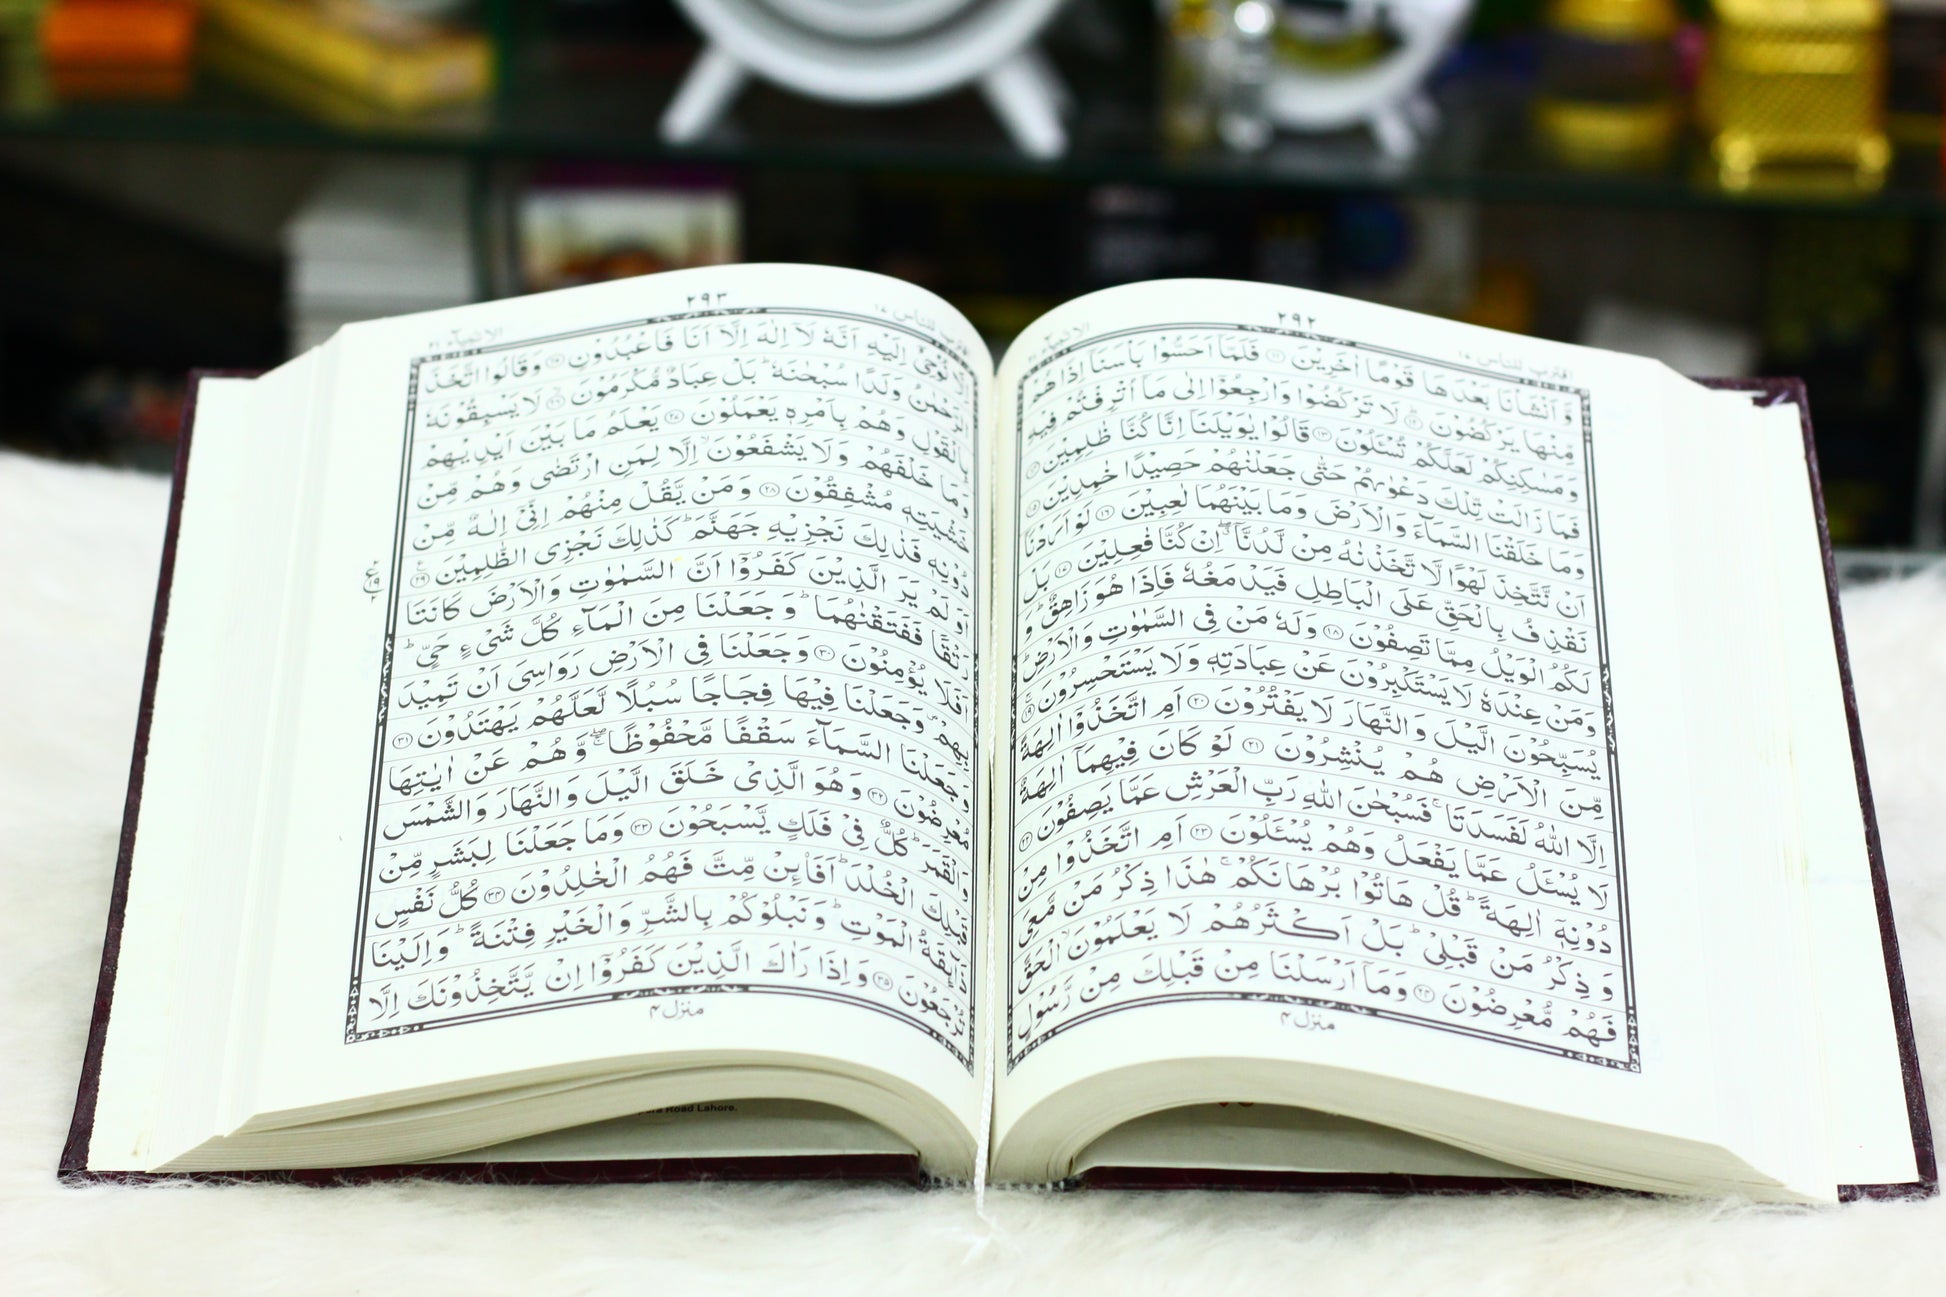 اقترب للناس ١٧
٢٩٢
الانبيآء ٢١
وَّ اَنْشَاْنَا بَعْدَهَا قَوْمًا اٰخَرِيْنَ ⑪ فَلَمَّاۤ اَحَسُّوْا بَاْسَنَاۤ اِذَا هُمْ
مِّنْهَا يَرْكُضُوْنَ ⑫ لَا تَرْكُضُوْا وَارْجِعُوْۤا اِلٰى مَاۤ اُتْرِفْتُمْ فِيْهِ
وَمَسٰكِنِكُمْ لَعَلَّكُمْ تُسْـَٔلُوْنَ ⑬ قَالُوْا يٰوَيْلَنَاۤ اِنَّا كُنَّا ظٰلِمِيْنَ ⑭
فَمَا زَالَتْ تِّلْكَ دَعْوٰىهُمْ حَتّٰى جَعَلْنٰهُمْ حَصِيْدًا خٰمِدِيْنَ ⑮
وَمَا خَلَقْنَا السَّمَآءَ وَالْاَرْضَ وَمَا بَيْنَهُمَا لٰعِبِيْنَ ⑯ لَوْ اَرَدْنَاۤ
اَنْ نَّتَّخِذَ لَهْوًا لَّاتَّخَذْنٰهُ مِنْ لَّدُنَّاۤ ۖۗ اِنْ كُنَّا فٰعِلِيْنَ ⑰ بَلْ
نَقْذِفُ بِالْحَقِّ عَلَى الْبَاطِلِ فَيَدْمَغُهٗ فَاِذَا هُوَ زَاهِقٌ ؕ وَ
لَكُمُ الْوَيْلُ مِمَّا تَصِفُوْنَ ⑱ وَلَهٗ مَنْ فِى السَّمٰوٰتِ وَالْاَرْضِ ؕ
وَمَنْ عِنْدَهٗ لَا يَسْتَكْبِرُوْنَ عَنْ عِبَادَتِهٖ وَلَا يَسْتَحْسِرُوْنَ ⑲
يُسَبِّحُوْنَ الَّيْلَ وَالنَّهَارَ لَا يَفْتُرُوْنَ ⑳ اَمِ اتَّخَذُوْۤا اٰلِهَةً
مِّنَ الْاَرْضِ هُمْ يُنْشِرُوْنَ ㉑ لَوْ كَانَ فِيْهِمَاۤ اٰلِهَةٌ
اِلَّا اللّٰهُ لَفَسَدَتَا ۚ فَسُبْحٰنَ اللّٰهِ رَبِّ الْعَرْشِ عَمَّا يَصِفُوْنَ ㉒
لَا يُسْـَٔلُ عَمَّا يَفْعَلُ وَهُمْ يُسْـَٔلُوْنَ ㉓ اَمِ اتَّخَذُوْا مِنْ
دُوْنِهٖۤ اٰلِهَةً ؕ قُلْ هَاتُوْا بُرْهَانَكُمْ ۚ هٰذَا ذِكْرُ مَنْ مَّعِىَ
وَ ذِكْرُ مَنْ قَبْلِىْ ؕ بَلْ اَكْثَرُهُمْ لَا يَعْلَمُوْنَ ۙ الْحَقَّ
فَهُمْ مُّعْرِضُوْنَ ㉔ وَمَاۤ اَرْسَلْنَا مِنْ قَبْلِكَ مِنْ رَّسُوْلٍ
منزل ٤
اقترب للناس ١٧
٢٩٣
الانبيآء ٢١
اِلَّا نُوْحِىْۤ اِلَيْهِ اَنَّهٗ لَاۤ اِلٰهَ اِلَّاۤ اَنَا فَاعْبُدُوْنِ ㉕ وَقَالُوا اتَّخَذَ
الرَّحْمٰنُ وَلَدًا سُبْحٰنَهٗ ؕ بَلْ عِبَادٌ مُّكْرَمُوْنَ ㉖ لَا يَسْبِقُوْنَهٗ
بِالْقَوْلِ وَهُمْ بِاَمْرِهٖ يَعْمَلُوْنَ ㉗ يَعْلَمُ مَا بَيْنَ اَيْدِيْهِمْ
وَمَا خَلْفَهُمْ وَلَا يَشْفَعُوْنَ ۙ اِلَّا لِمَنِ ارْتَضٰى وَهُمْ مِّنْ
خَشْيَتِهٖ مُشْفِقُوْنَ ㉘ وَمَنْ يَّقُلْ مِنْهُمْ اِنِّىْۤ اِلٰهٌ مِّنْ
دُوْنِهٖ فَذٰلِكَ نَجْزِيْهِ جَهَنَّمَ ؕ كَذٰلِكَ نَجْزِى الظّٰلِمِيْنَ ㉙
اَوَلَمْ يَرَ الَّذِيْنَ كَفَرُوْۤا اَنَّ السَّمٰوٰتِ وَالْاَرْضَ كَانَتَا
رَتْقًا فَفَتَقْنٰهُمَا ؕ وَجَعَلْنَا مِنَ الْمَآءِ كُلَّ شَىْءٍ حَىٍّ ؕ
اَفَلَا يُؤْمِنُوْنَ ㉚ وَجَعَلْنَا فِى الْاَرْضِ رَوَاسِىَ اَنْ تَمِيْدَ
بِهِمْ ۪ وَجَعَلْنَا فِيْهَا فِجَاجًا سُبُلًا لَّعَلَّهُمْ يَهْتَدُوْنَ ㉛
وَجَعَلْنَا السَّمَآءَ سَقْفًا مَّحْفُوْظًا ۖۚ وَّهُمْ عَنْ اٰيٰتِهَا
مُعْرِضُوْنَ ㉜ وَهُوَ الَّذِىْ خَلَقَ الَّيْلَ وَالنَّهَارَ وَالشَّمْسَ
وَالْقَمَرَ ؕ كُلٌّ فِىْ فَلَكٍ يَّسْبَحُوْنَ ㉝ وَمَا جَعَلْنَا لِبَشَرٍ مِّنْ
قَبْلِكَ الْخُلْدَ ؕ اَفَا۟ئِنْ مِّتَّ فَهُمُ الْخٰلِدُوْنَ ㉞ كُلُّ نَفْسٍ
ذَآئِقَةُ الْمَوْتِ ؕ وَنَبْلُوْكُمْ بِالشَّرِّ وَالْخَيْرِ فِتْنَةً ؕ وَاِلَيْنَا
تُرْجَعُوْنَ ㉟ وَاِذَا رَاٰكَ الَّذِيْنَ كَفَرُوْۤا اِنْ يَّتَّخِذُوْنَكَ اِلَّا
منزل ٤
Road Lahore.